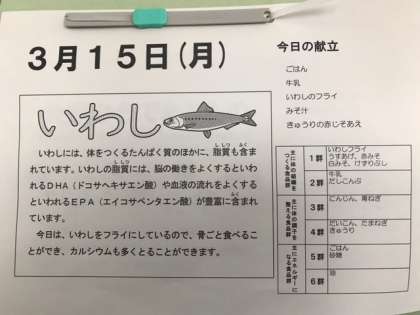 ３月１５日(月)
いわし
いわしには、体をつくるたんぱく質のほかに、脂質も含ま
れています。いわしの脂質には、脳の働きをよくするといわ
れるＤＨＡ（ドコサヘキサエン酸）や血液の流れをよくする
といわれるＥＰＡ（エイコサペンタエン酸）が豊富に含まれ
ています。
今日は、いわしをフライにしているので、骨ごと食べるこ
とができ、カルシウムも多くとることができます。
今日の献立
ごはん
牛乳
いわしのフライ
みそ汁
きゅうりの赤じそあえ
主に体の組織をつくる食品群
１群
いわしフライ
うすあげ、赤みそ
白みそ、けずりぶし
２群
牛乳
だしこんぶ
主に体の調子を整える食品群
３群
にんじん、青ねぎ
４群
だいこん、たまねぎ
きゅうり
主にエネルギーになる食品群
５群
ごはん
砂糖
６群
油